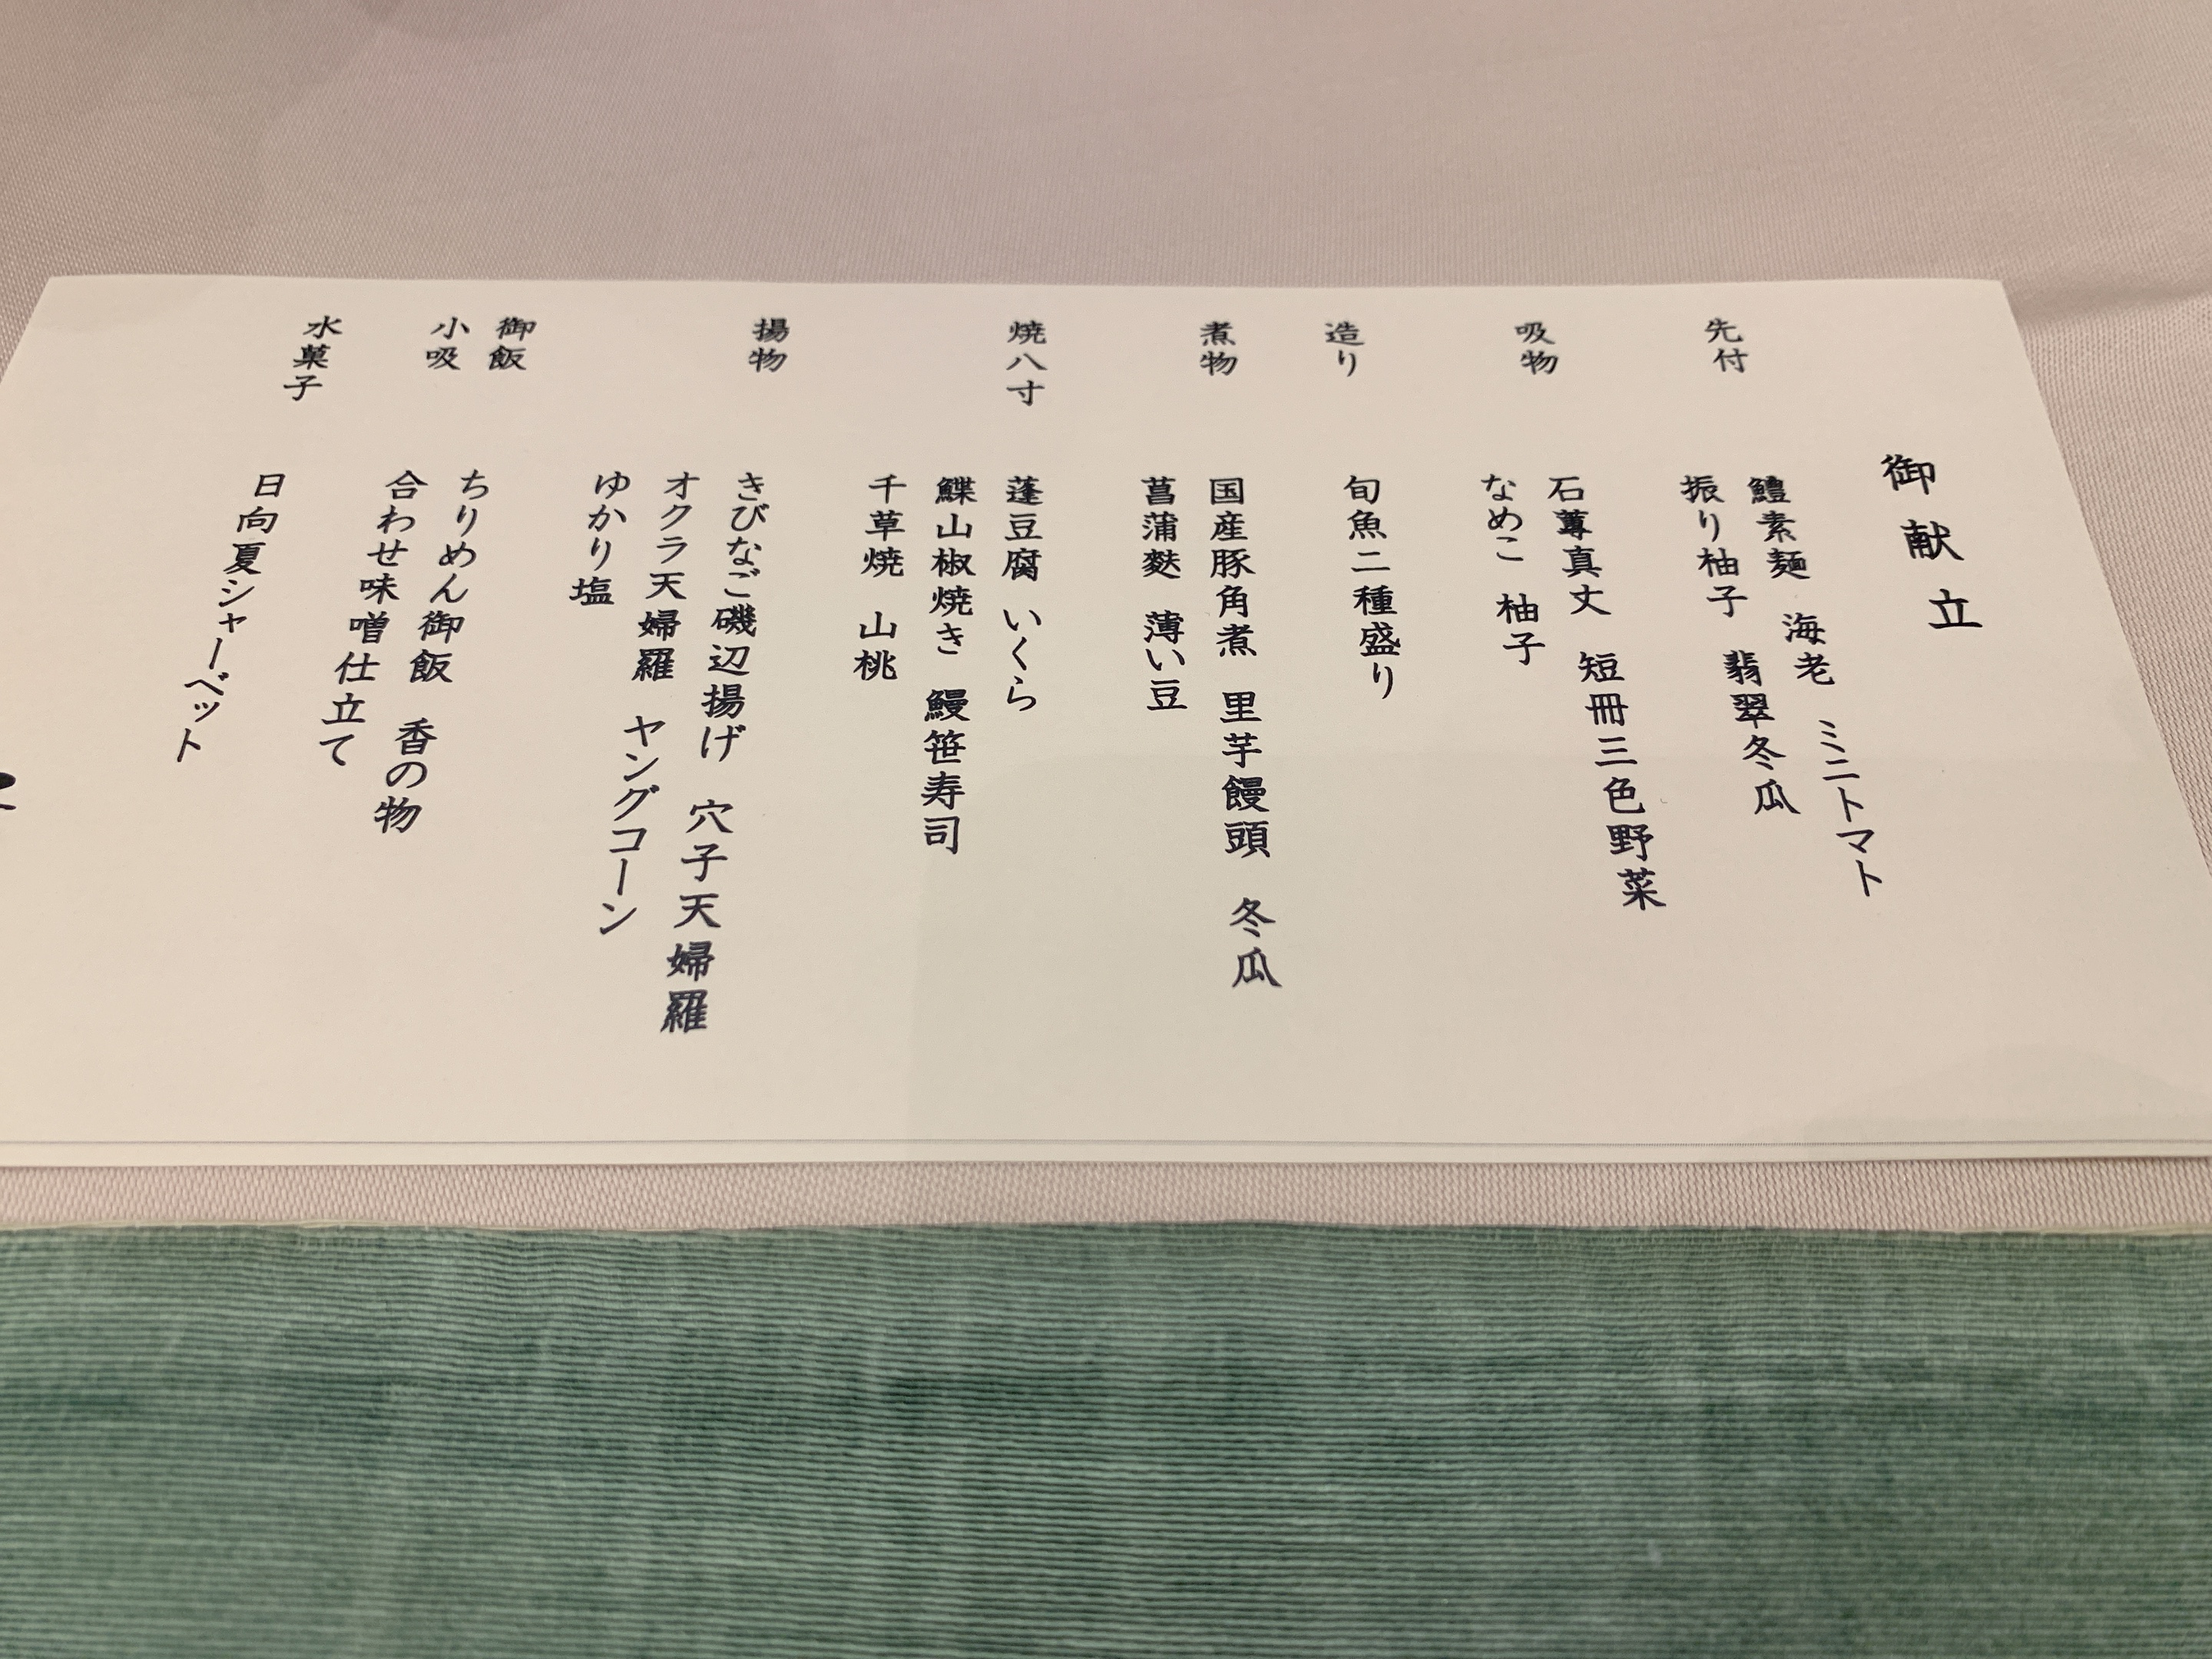 御献立
先付 鱧素麺 海老 ミニトマト
振り柚子 翡翠冬瓜
吸物 石蓴真丈 短冊三色野菜
なめこ 柚子
造り 旬魚二種盛り
煮物 国産豚角煮 里芋饅頭 冬瓜
菖蒲麩 薄い豆
焼八寸 蓬豆腐 いくら
鰈山椒焼き 鰻笹寿司
千草焼 山桃
揚物 きびなご磯辺揚げ 穴子天婦羅
オクラ天婦羅 ヤングコーン
ゆかり塩
御飯 ちりめん御飯 香の物
小吸 合わせ味噌仕立て
水菓子 日向夏シャーベット